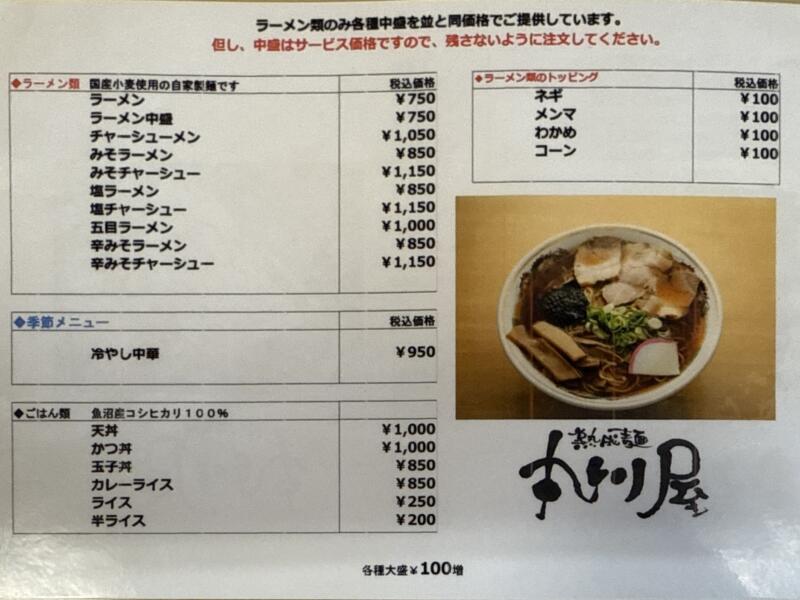 ラーメン類のみ各種中盛を並と同価格でご提供しています。
但し、中盛はサービス価格ですので、残さないように注文してください。
◆ラーメン類 国産小麦使用の自家製麺です 税込価格
ラーメン ¥750
ラーメン中盛 ¥750
チャーシューメン ¥1,050
みそラーメン ¥850
みそチャーシュー ¥1,150
塩ラーメン ¥850
塩チャーシュー ¥1,150
五目ラーメン ¥1,000
辛みそラーメン ¥850
辛みそチャーシュー ¥1,150
◆季節メニュー 税込価格
冷やし中華 ¥950
◆ごはん類 魚沼産コシヒカリ100%
天丼 ¥1,000
かつ丼 ¥1,000
玉子丼 ¥850
カレーライス ¥850
ライス ¥250
半ライス ¥200
◆ラーメン類のトッピング 税込価格
ネギ ¥100
メンマ ¥100
わかめ ¥100
コーン ¥100
熟成麺
各種大盛¥100増